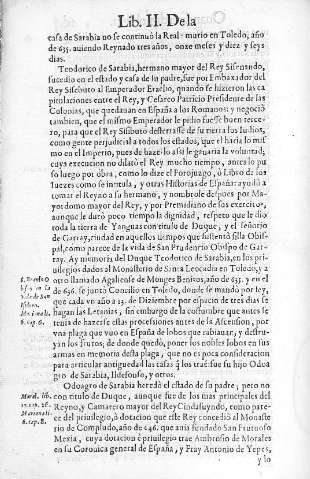 Lib. II. De la
casa de Sarabia no se continuó la Real. murio en Toledo, año
de 635. auiendo Reynado tres años, onze meses y diez y seys
dias.
Teodorico de Sarabia, hermano mayor del Rey Sisenando,
sucedio en el estado y casa de su padre, fue por Embaxador del
Rey Sisebuto al Emperador Eraclio, quando se hizieron las ca
pitulaciones entre el Rey, y Cesareo Patricio Presidente de las
Colonias, que quedauan en España a los Romanos: y negoció
tambien, que el mismo Emperador le pidio fuesse buen terce-
ro, para que el Rey Sisibuto desterrasse de su tierra los Iudios,
como gente perjudicial a todos los estados, que el haria lo mis
mo en el Imperio, pues de hazello assi le ganaria la voluntad;
cuya execucion no dilató el Rey mucho tiempo, antes lo pu
so luego por obra, como lo dize el Forojuzgo, ò Libro de los
Iuezes como se intitula, y otras Historias de España: ayudò a
tomar el Reyno a su hermano, y nombrole despues por Ma-
yordomo mayor del Rey, y por Premidiano de sus exercitos,
aunque le durò poco tiempo la dignidad, respeto que le dio
toda la tierra de Yanguas con titulo de Duque, y el señorio
de Garray, ciudad en aquellos tiempos que sustentó silla Obis-
pal, como parece de la vida de San Prudencio Obispo de Gar-
ray. Ay memoria del Duque Teodorico de Sarabia, en los pri-
uilegios dados al Monasterio de Santa Leocadia en Toledo, y a
otro llamado Agaliense de Monges Benitos, año de 635. y en el
de 656. se juntó Concilio en Toledo, donde se mandó por ley,
que cada vn año a 13. de Diziembre por espacio de tres dias se
hagan las Letanias, sin embargo de la costumbre que antes se
tenia de hazerse estas processiones antes de la Ascension, por
vna plaga que vuo en España de lobos que rabiauan, y destru-
yan los frutos; de donde quedó, poner los nobles lobos en sus
armas en memoria desta plaga, que no es poca consideracion
para articular antiguedad las casas q̃ los traē: fue su hijo Odoa
gro de Sarabia, Ildefonso, y otros.
Odoagro de Sarabia heredó el estado de su padre; pero no
con titulo de Duque, aunque fue de los mas principales del
Reyno, y Camarero mayor del Rey Cindasuyndo, como pare-
ce del priuilegio, ò dotacion que este Rey concedió al Monaste
rio de Compludo, año de 646. que auia fundado San Frutuoso
Mexia, cuya dotacion ò priuilegio trae Ambrosio de Morales
en su Coronica general de España, y Fray Antonio de Yepes,
y lo
8. cap. 6.
Moral. lib.
12. cap. 28.
8. cap. 8.